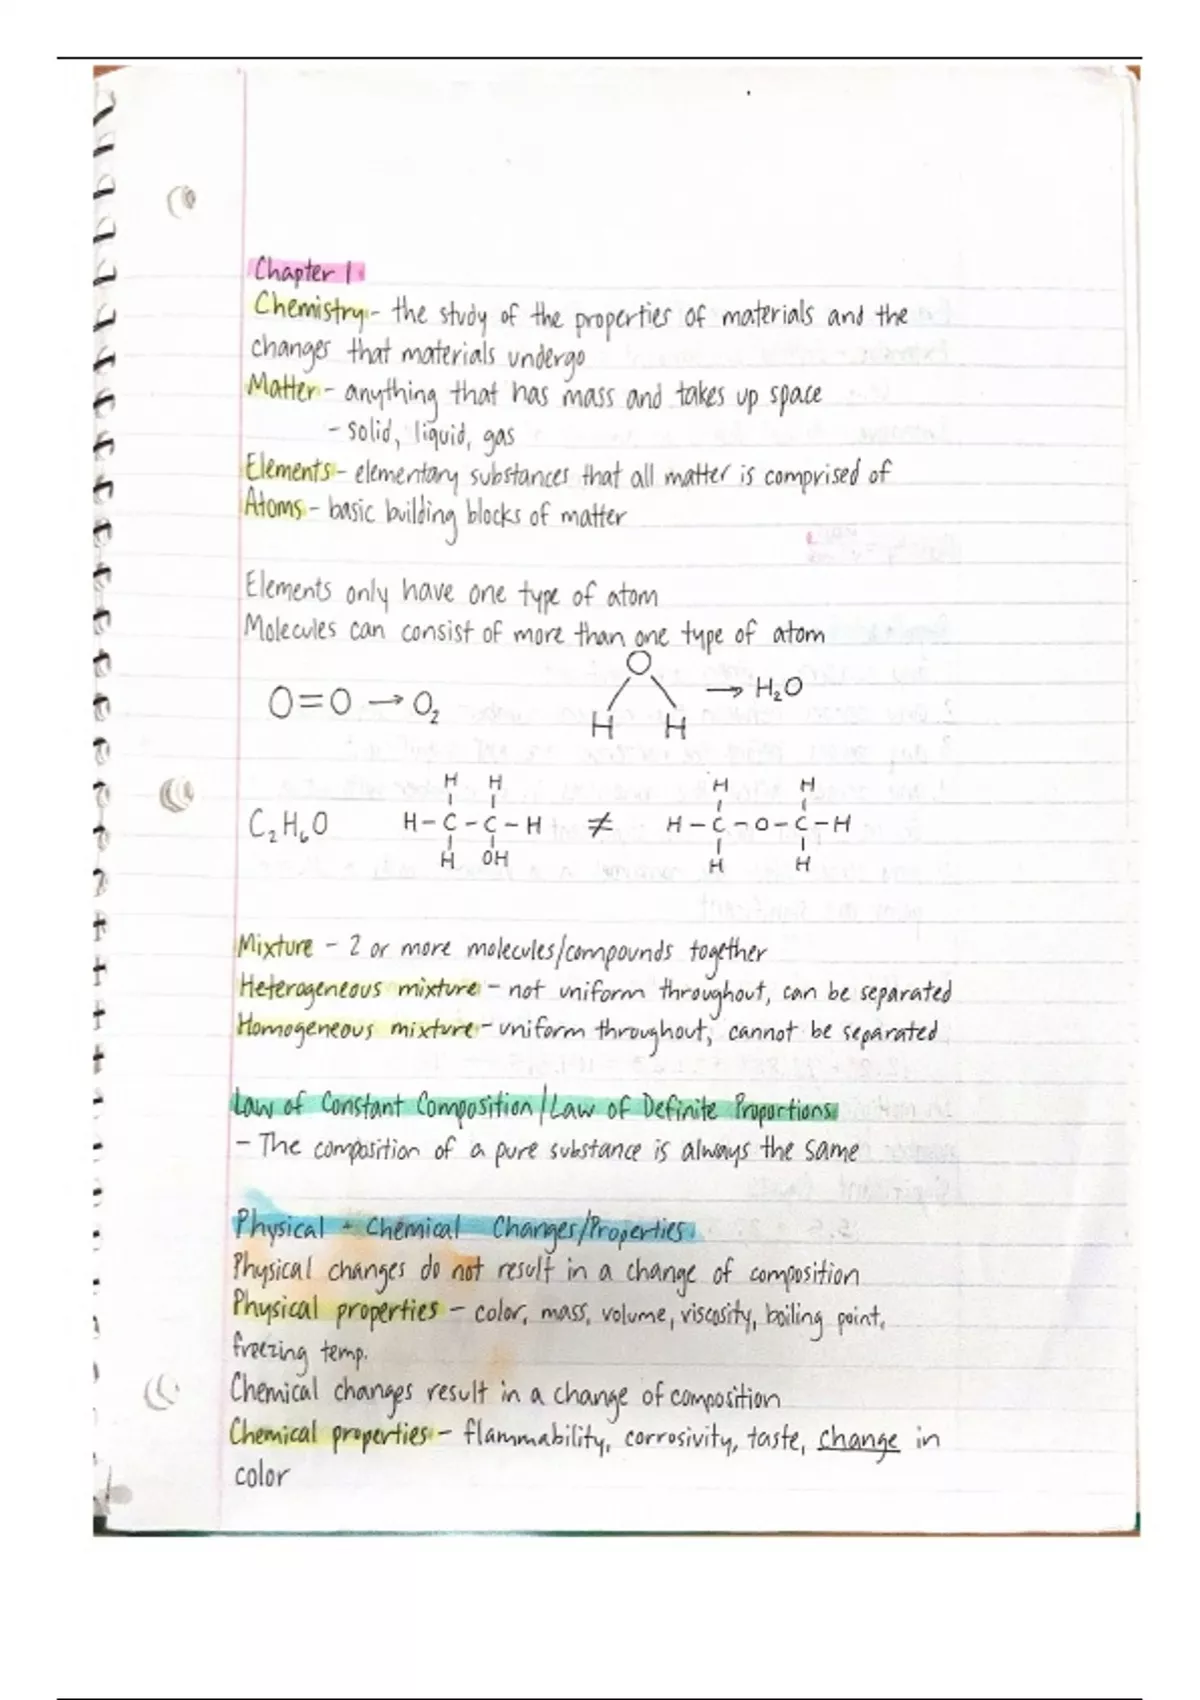 Chapter 1
Chemistry - the study of the properties of materials and the
changes that materials undergo
Matter - anything that has mass and takes up space
- solid, liquid, gas
Elements - elementary substances that all matter is comprised of
Atoms - basic building blocks of matter
Elements only have one type of atom
Molecules can consist of more than one type of atom
O=O → O₂
O
H H → H₂O
H H H H
C₂H₆O H-C-C-H ≠ H-C-O-C-H
H OH H H
Mixture - 2 or more molecules/compounds together
Heterogeneous mixture - not uniform throughout, can be separated
Homogeneous mixture - uniform throughout, cannot be separated
Law of Constant Composition/Law of Definite Proportions
- The composition of a pure substance is always the same
Physical + Chemical Changes/Properties
Physical changes do not result in a change of composition
Physical properties - color, mass, volume, viscosity, boiling point,
freezing temp.
Chemical changes result in a change of composition
Chemical properties - flammability, corrosivity, taste, change in
color